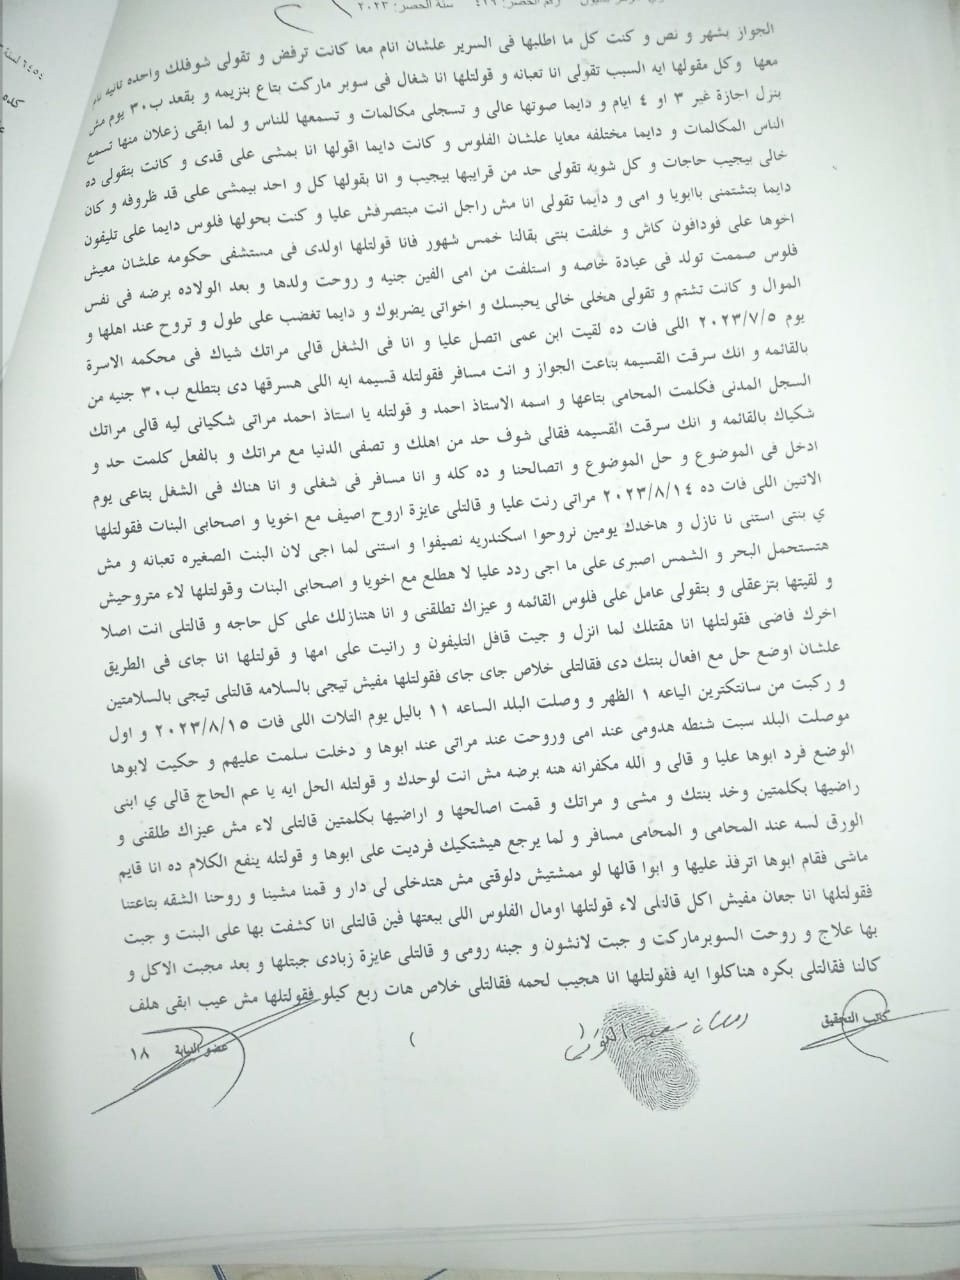 سنة الحصر: ٢٠٢٣
الجواز بشهر و نص و كنت كل ما اطلبها فى السرير علشان انام معا كانت ترفض و تقولى شوفلك واحده تانيه نام
معها وكل مقولها ايه السبب تقولى انا تعبانه و قولتلها انا شغال فى سوبر ماركت بتاع بنزيمه و بقعد ب٣٠ يوم مش
بنزل اجازة غير ٣ او ٤ ايام و دايما صوتها عالى و تسجلى مكالمات و تسمعها للناس و لما ابقى زعلان منها تسمع
الناس المكالمات و دايما مختلفه معايا علشان الفلوس و كانت دايما اقولها انا بمشى على قدى و كانت بتقولى ده
خالى بيجيب حاجات و كل شويه تقولى حد من قرايبها بيجيب و انا بقولها كل و احد بيمشى على قد ظروفه و كان
دايما بتشتمنى باابويا و امى و دايما تقولى انا مش راجل انت مبتصرفش عليا و كنت بحولها فلوس دايما على تليفون
اخوها على فودافون كاش و خلفت بنتى بقالنا خمس شهور فانا قولتلها اولدى فى مستشفى حكومه علشان معيش
فلوس صممت تولد فى عيادة خاصه و استلفت من امى الفين جنيه و روحت ولدها و بعد الولاده برضه فى نفس
الموال و كانت تشتم و تقولى هخلى خالى يحبسك و اخواتى يضربوك و دايما تغضب على طول و تروح عند اهلها و
يوم ٢٠٢٣/٧/٥ اللى فات ده لقيت ابن عمى اتصل عليا و انا فى الشغل قالى مراتك شياك فى محكمه الاسرة
بالقائمه و انك سرقت القسيمه بتاعت الجواز و انت مسافر فقولتله قسيمه ايه اللى هسرقها دى بتطلع ب٣٠ جنيه من
السجل المدنى فكلمت المحامى بتاعها و اسمه الاستاذ احمد و قولتله يا استاذ احمد مراتى شكيانى ليه قالى مراتك
شكياك بالقائمه و انك سرقت القسيمه فقالى شوف حد من اهلك و تصفى الدنيا مع مراتك و بالفعل كلمت حد و
ادخل فى الموضوع و حل الموضوع و اتصالحنا و ده كله و انا مسافر فى شغلى و انا هناك فى الشغل بتاعى يوم
الاتنين اللى فات ده ٢٠٢٣/٨/١٤ مراتى رنت عليا و قالتلى عايزة اروح اصيف مع اخويا و اصحابى البنات فقولتلها
ي بنتى استنى نا نازل و هاخدك يومين نروحوا اسكندريه نصيفوا و استنى لما اجى لان البنت الصغيره تعبانه و مش
هتستحمل البحر و الشمس اصبرى على ما اجى ردد عليا لا هطلع مع اخويا و اصحابى البنات وقولتلها لاء متروحيش
و لقيتها بتزعقلى و بتقولى عامل على فلوس القائمه و عيزاك تطلقنى و انا هتنازلك على كل حاجه و قالتلى انت اصلا
اخرك فاضى فقولتلها انا هقتلك لما انزل و جيت قافل التليفون و رانيت على امها و قولتلها انا جاى فى الطريق
علشان اوضع حل مع افعال بنتك دى فقالتلى خلاص جاى جاى فقولتلها مفيش تيجى بالسلامه قالتلى تيجى بالسلامتين
و ركبت من سانتكترين الياعه ١ الظهر و وصلت البلد الساعه ١١ باليل يوم التلات اللى فات ٢٠٢٣/٨/١٥ و اول
موصلت البلد سبت شنطه هدومى عند امى وروحت عند مراتى عند ابوها و دخلت سلمت عليهم و حكيت لابوها
الوضع فرد ابوها عليا و قالى و الله مكفرانه هنه برضه مش انت لوحدك و قولتله الحل ايه يا عم الحاج قالى ي ابنى
راضيها بكلمتين وخد بنتك و مشى و مراتك و قمت اصالحها و اراضيها بكلمتين قالتلى لاء مش عيزاك طلقنى و
الورق لسه عند المحامى و المحامى مسافر و لما يرجع هيشتكيك فرديت على ابوها و قولتله ينفع الكلام ده انا قايم
ماشى فقام ابوها اترفذ عليها و ابوا قالها لو ممشتيش دلوقتى مش هتدخلى لى دار و قمنا مشينا و روحنا الشقه بتاعتنا
فقولتلها انا جعان مفيش اكل قالتلى لاء قولتلها اومال الفلوس اللى ببعتها فين قالتلى انا كشفت بها على البنت و جبت
بها علاج و روحت السوبرماركت و جبت لانشون و جبنه رومى و قالتلى عايزة زبادى جبتلها و بعد مجبت الاكل و
كالنا فقالتلى بكره هناكلوا ايه فقولتلها انا هجيب لحمه فقالتلى خلاص هات ربع كيلو فقولتلها مش عيب ابقى هلف
كاتب التحقيق
(
عضو النيابة
١٨